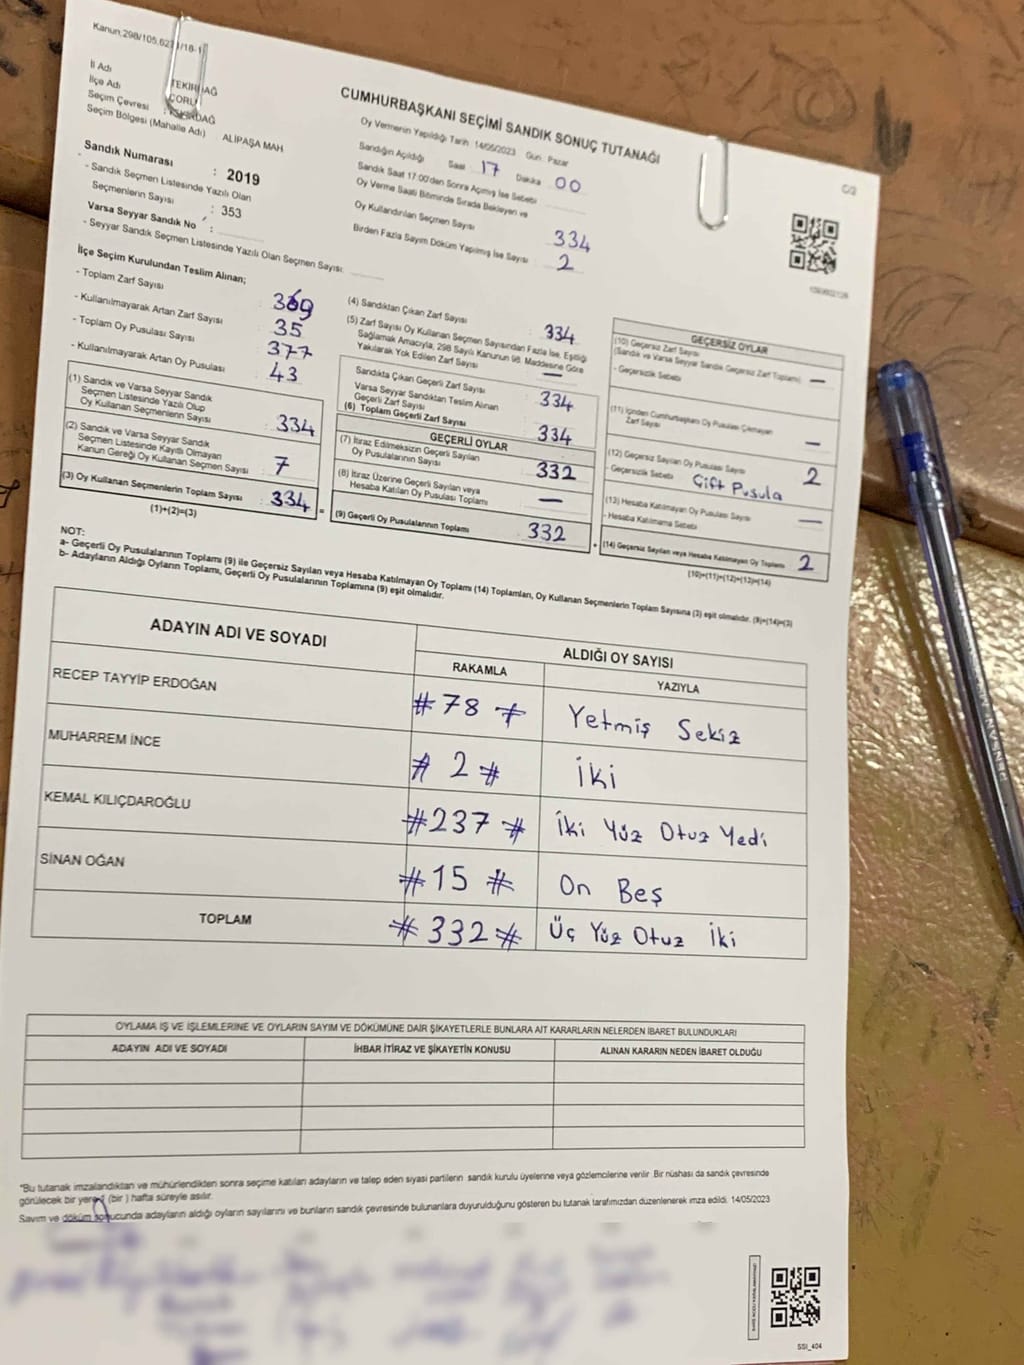 Kanun:298/105,62
/18-1
İl Adı
TEKİRDAĞ
İlçe Adı
ÇORLU
Seçim Çevresi : TEKİRDAĞ
Seçim Bölgesi (Mahalle Adı) : ALİPAŞA MAH
Sandık Numarası : 2019
- Sandık Seçmen Listesinde Yazılı Olan
Seçmenlerin Sayısı : 353
Varsa Seyyar Sandık No :
- Seyyar Sandık Seçmen Listesinde Yazılı Olan Seçmen Sayısı:
CUMHURBAŞKANI SEÇİMİ SANDIK SONUÇ TUTANAĞI
C/2
Oy Vermenin Yapıldığı Tarih 14/05/2023 Gün : Pazar
Sandığın Açıldığı Saat 17 Dakika 00
Sandık Saat 17:00'den Sonra Açılmış İse Sebebi
Oy Verme Saati Bitiminde Sırada Bekleyen ve
Oy Kullandırılan Seçmen Sayısı 334
Birden Fazla Sayım Döküm Yapılmış İse Sayısı 2
İlçe Seçim Kurulundan Teslim Alınan;
- Toplam Zarf Sayısı : 369
- Kullanılmayarak Artan Zarf Sayısı : 35
- Toplam Oy Pusulası Sayısı : 377
- Kullanılmayarak Artan Oy Pusulası : 43
(1) Sandık ve Varsa Seyyar Sandık
Seçmen Listesinde Yazılı Olup
Oy Kullanan Seçmenlerin Sayısı : 334
(2) Sandık ve Varsa Seyyar Sandık
Seçmen Listesinde Kayıtlı Olmayan
Kanun Gereği Oy Kullanan Seçmen Sayısı : 7
(3) Oy Kullanan Seçmenlerin Toplam Sayısı : 334
(1)+(2)=(3)
(4) Sandıktan Çıkan Zarf Sayısı : 334
(5) Zarf Sayısı Oy Kullanan Seçmen Sayısından Fazla İse, Eşitliği
Sağlamak Amacıyla, 298 Sayılı Kanunun 98. Maddesine Göre
Yakılarak Yok Edilen Zarf Sayısı : —
Sandıkta Çıkan Geçerli Zarf Sayısı : 334
Varsa Seyyar Sandıktan Teslim Alınan
Geçerli Zarf Sayısı
(6) Toplam Geçerli Zarf Sayısı : 334
GEÇERLİ OYLAR
(7) İtiraz Edilmeksizin Geçerli Sayılan
Oy Pusulalarının Sayısı : 332
(8) İtiraz Üzerine Geçerli Sayılan veya
Hesaba Katılan Oy Pusulası Toplamı : —
= (9) Geçerli Oy Pusulalarının Toplamı : 332
GEÇERSİZ OYLAR
(10) Geçersiz Zarf Sayısı
(Sandık ve Varsa Seyyar Sandık Geçersiz Zarf Toplamı) —
- Geçersizlik Sebebi
(11) İçinden Cumhurbaşkanı Oy Pusulası Çıkmayan
Zarf Sayısı —
(12) Geçersiz Sayılan Oy Pusulası Sayısı 2
- Geçersizlik Sebebi : Çift Pusula
(13) Hesaba Katılmayan Oy Pusulası Sayısı —
- Hesaba Katılmama Sebebi
+ (14) Geçersiz Sayılan veya Hesaba Katılmayan Oy Toplamı : 2
(10)+(11)+(12)+(13)=(14)
NOT:
a- Geçerli Oy Pusulalarının Toplamı (9) ile Geçersiz Sayılan veya Hesaba Katılmayan Oy Toplamı (14) Toplamları, Oy Kullanan Seçmenlerin Toplam Sayısına (3) eşit olmalıdır. (9)+(14)=(3)
b- Adayların Aldığı Oyların Toplamı, Geçerli Oy Pusulalarının Toplamına (9) eşit olmalıdır.
ADAYIN ADI VE SOYADI
ALDIĞI OY SAYISI
RAKAMLA
YAZIYLA
RECEP TAYYİP ERDOĞAN # 78 # Yetmiş Sekiz
MUHARREM İNCE # 2 # İki
KEMAL KILIÇDAROĞLU #237 # İki Yüz Otuz Yedi
SİNAN OĞAN # 15 # On Beş
TOPLAM # 332 # Üç Yüz Otuz İki
OYLAMA İŞ VE İŞLEMLERİNE VE OYLARIN SAYIM VE DÖKÜMÜNE DAİR ŞİKAYETLERLE BUNLARA AİT KARARLARIN NELERDEN İBARET BULUNDUKLARI
ADAYIN ADI VE SOYADI
İHBAR İTİRAZ VE ŞİKAYETİN KONUSU
ALINAN KARARIN NEDEN İBARET OLDUĞU
"Bu tutanak imzalandıktan ve mühürlendikten sonra seçime katılan adayların ve talep eden siyasi partilerin sandık kurulu üyelerine veya gözlemcilerine verilir .Bir nüshası da sandık çevresinde
görülecek bir yere 1 (bir ) hafta süreyle asılır.
Sayım ve döküm sonucunda adayların aldığı oyların sayılarını ve bunların sandık çevresinde bulunanlara duyurulduğunu gösteren bu tutanak tarafımızdan düzenlenerek imza edildi. 14/05/2023
SSİ_404